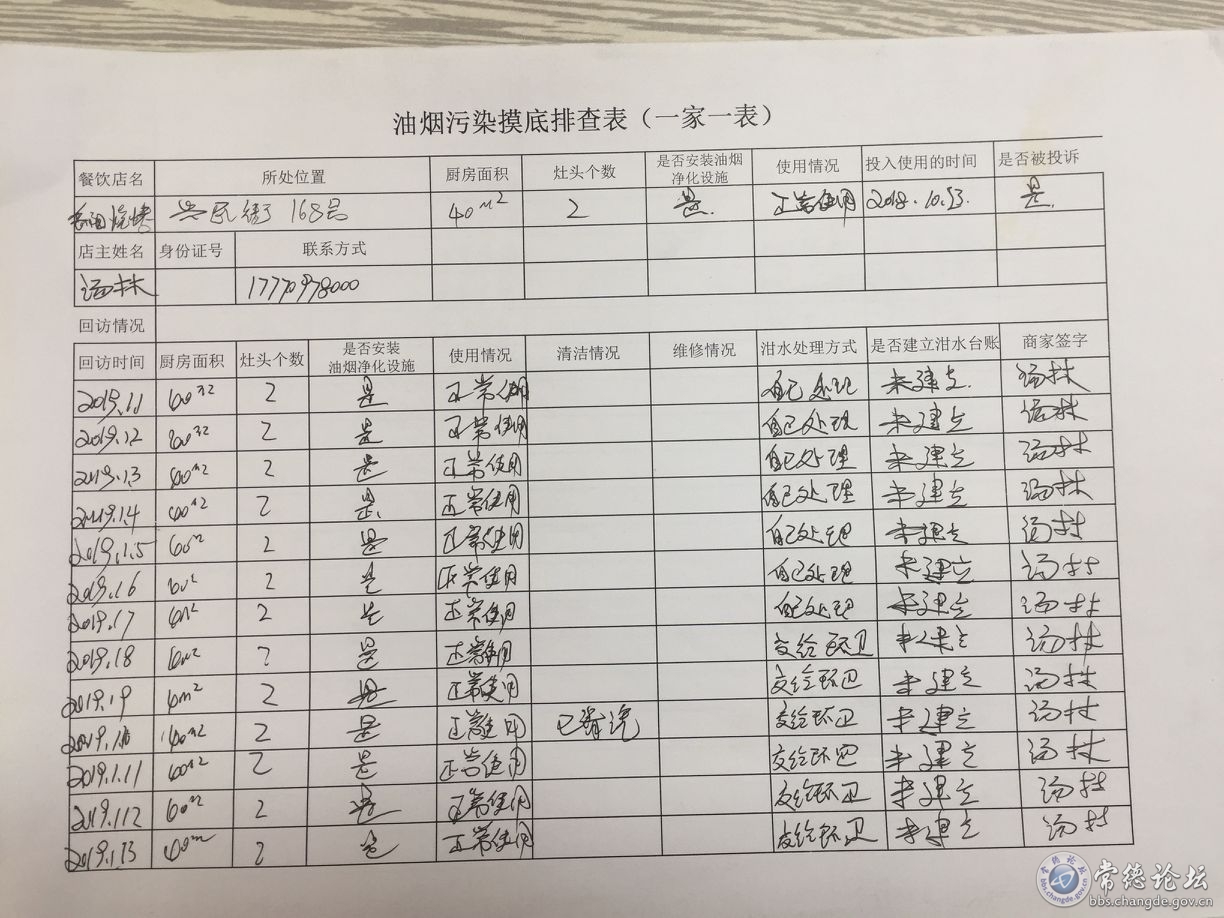 油烟污染摸底排查表（一家一表）
餐饮店名 所处位置 厨房面积 灶头个数 是否安装油烟净化设施 使用情况 投入使用的时间 是否被投诉
烧烤 兴民街 168号 40m² 2 是. 正常使用 2018.10. 是.
店主姓名 身份证号 联系方式
汤林 17770978000
回访情况
回访时间 厨房面积 灶头个数 是否安装油烟净化设施 使用情况 清洁情况 维修情况 泔水处理方式 是否建立泔水台账 商家签字
2019.1.1 2 是 正常使用 自己处理 未建立. 汤林
2019.1.2 2 是 正常使用 自己处理 未建立 汤林
2019.1.3 2 是 正常使用 自己处理 未建立 汤林
2019.1.4 2 是. 正常使用 自己处理 未建立 汤林
2019.1.5 2 是 正常使用 自己处理 未建立 汤林
2019.1.6 2 是 正常使用 自己处理 未建立 汤林
2019.1.7 2 是 正常使用 自己处理 未建立 汤林
2019.1.8 2 是 正常使用 交给环卫 未建立 汤林
2019.1.9 2 是 正常使用 交给环卫 未建立 汤林
2019.1.10 40m² 2 是 正常使用 交给环卫 未建立 汤林
2019.1.11 2 是 正常使用 交给环卫 未建立 汤林
2019.1.12 2 是 正常使用 交给环卫 未建立 汤林
2019.1.13 2 是 正常使用 交给环卫 未建立 汤林
常德论坛
bbs.changde.gov.cn